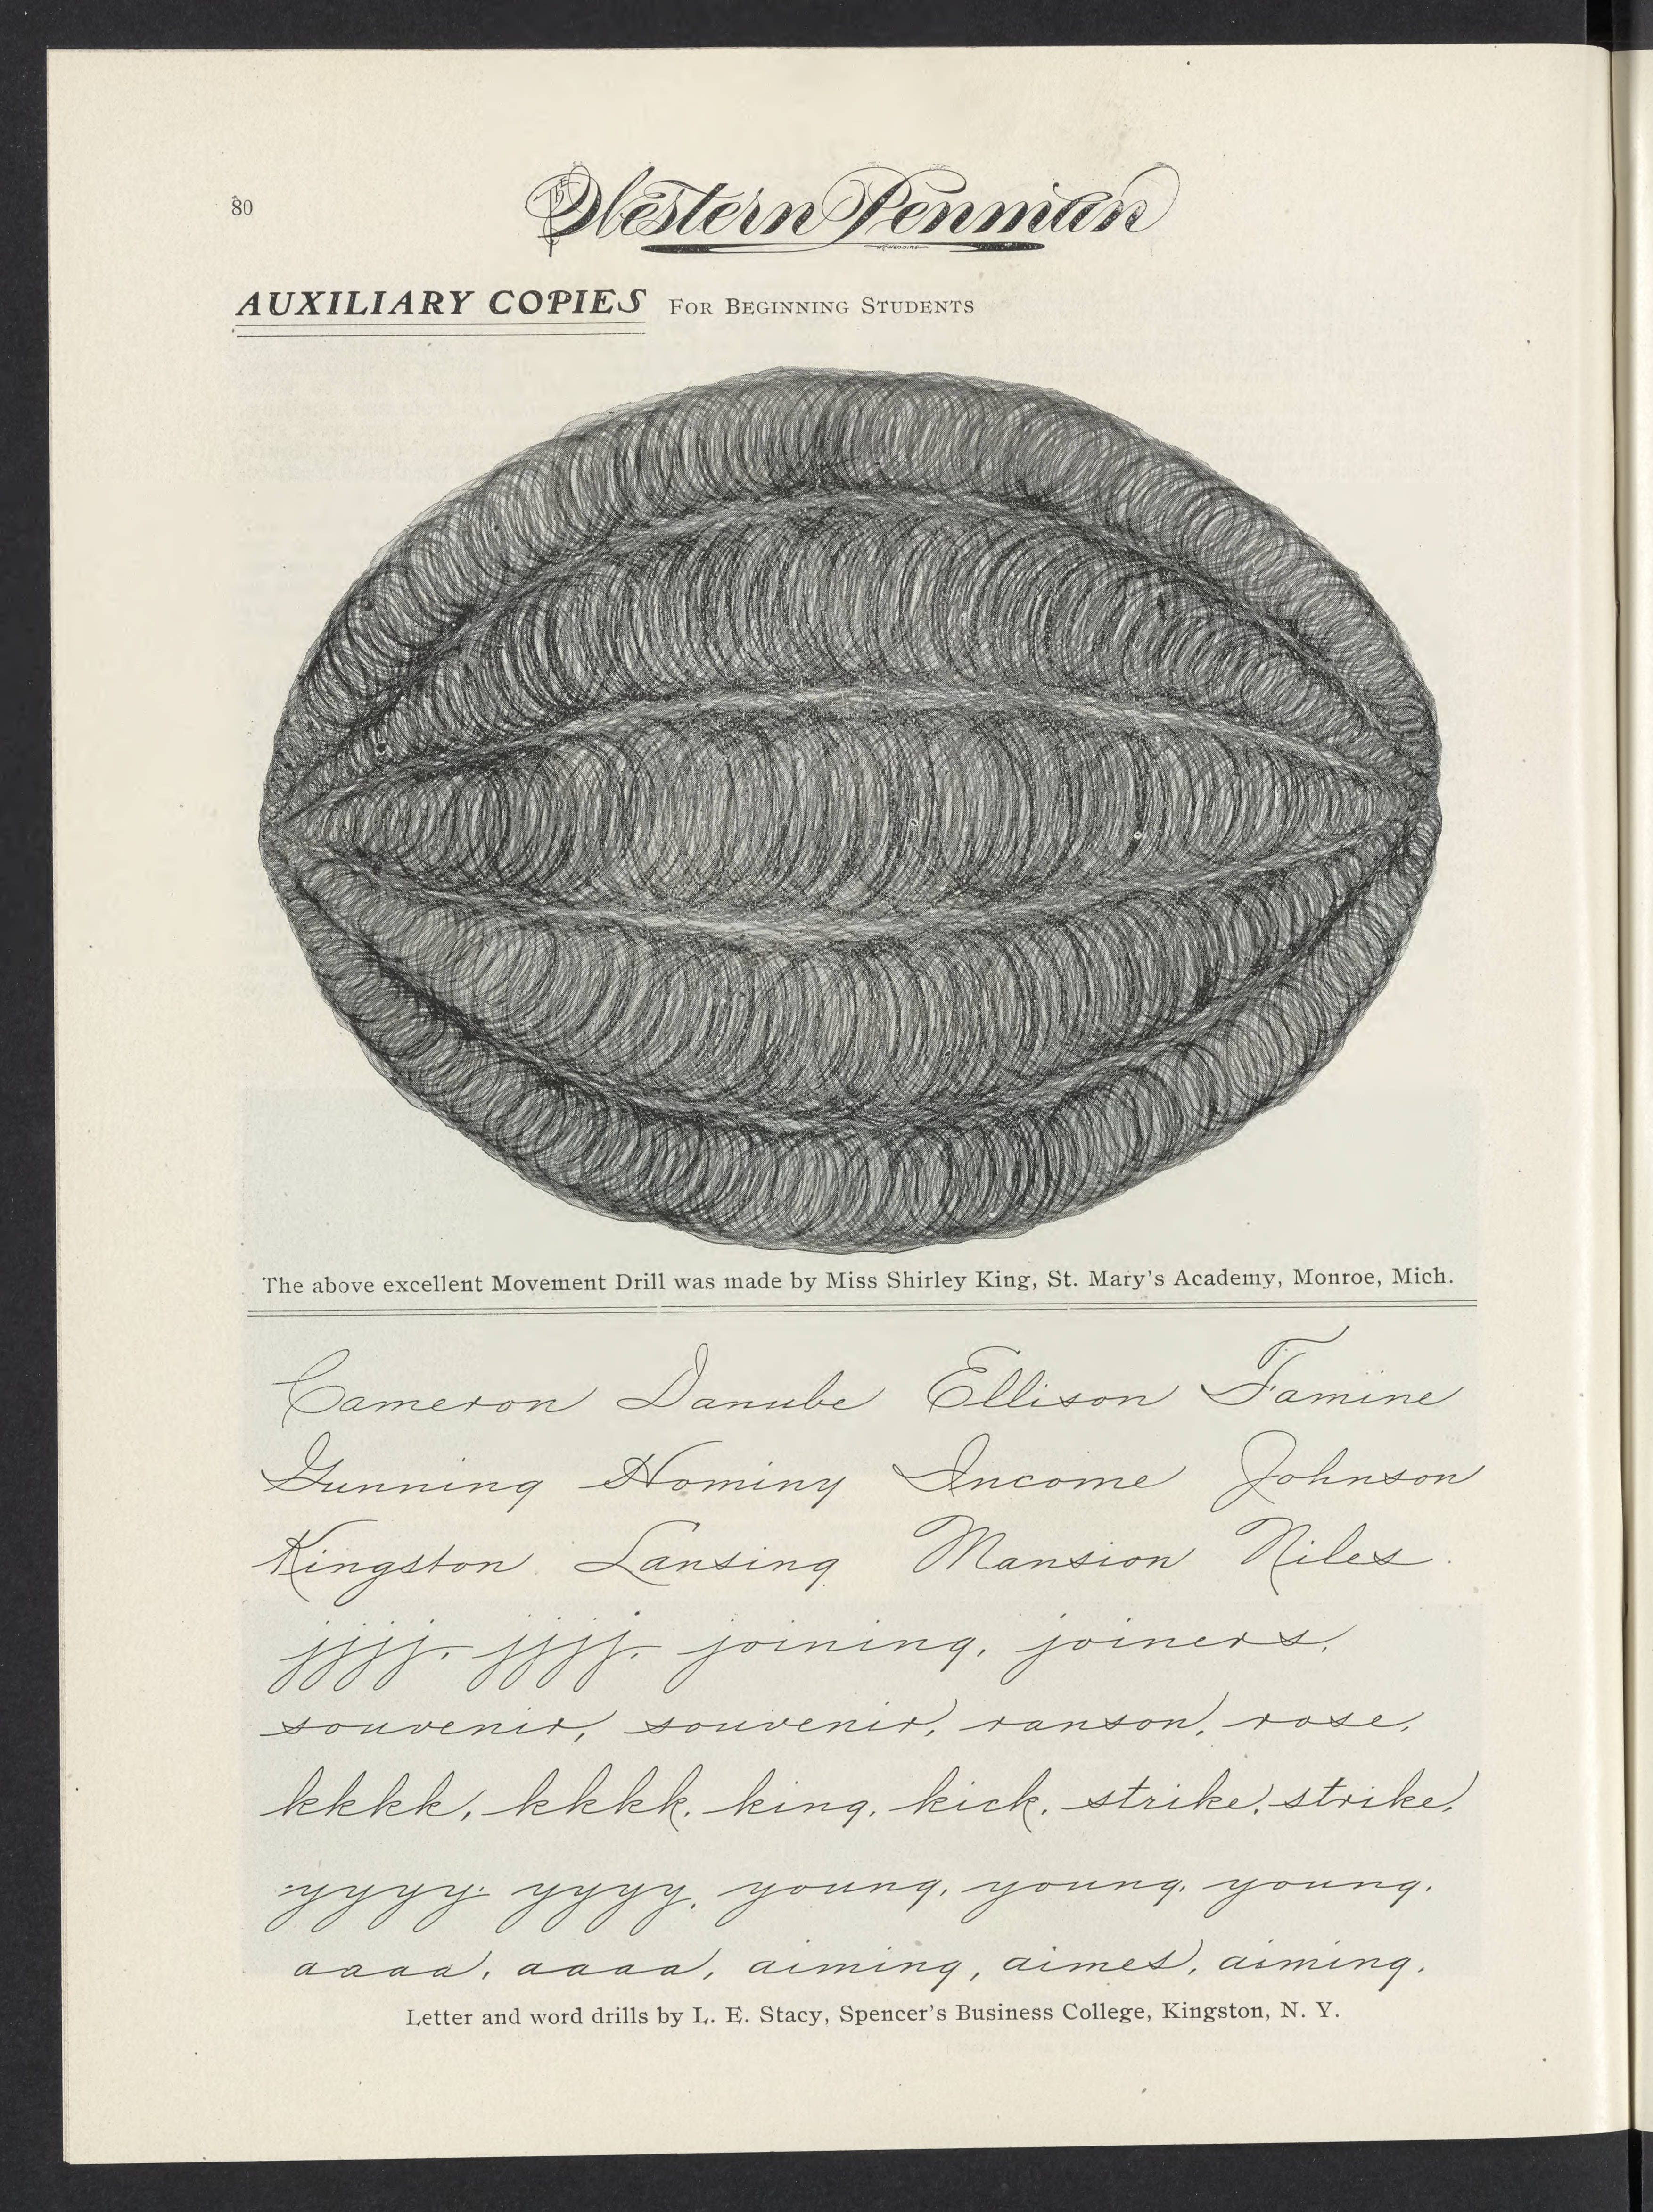 80
The Western Penman
AUXILIARY COPIES FOR BEGINNING STUDENTS
The above excellent Movement Drill was made by Miss Shirley King, St. Mary's Academy, Monroe, Mich.
Cameron Danube Ellison Famine
Gunning Hominy Income Johnson
Kingston Lansing Mansion Niles.
jjjj, jjjj, joining, joiners,
souvenir, souvenir, ranson, rose,
kkkk, kkkk, king, kick, strike, strike,
yyyy yyyy, young, young, young.
aaaa, aaaa, aiming, aimes, aiming.
Letter and word drills by L. E. Stacy, Spencer's Business College, Kingston, N. Y.